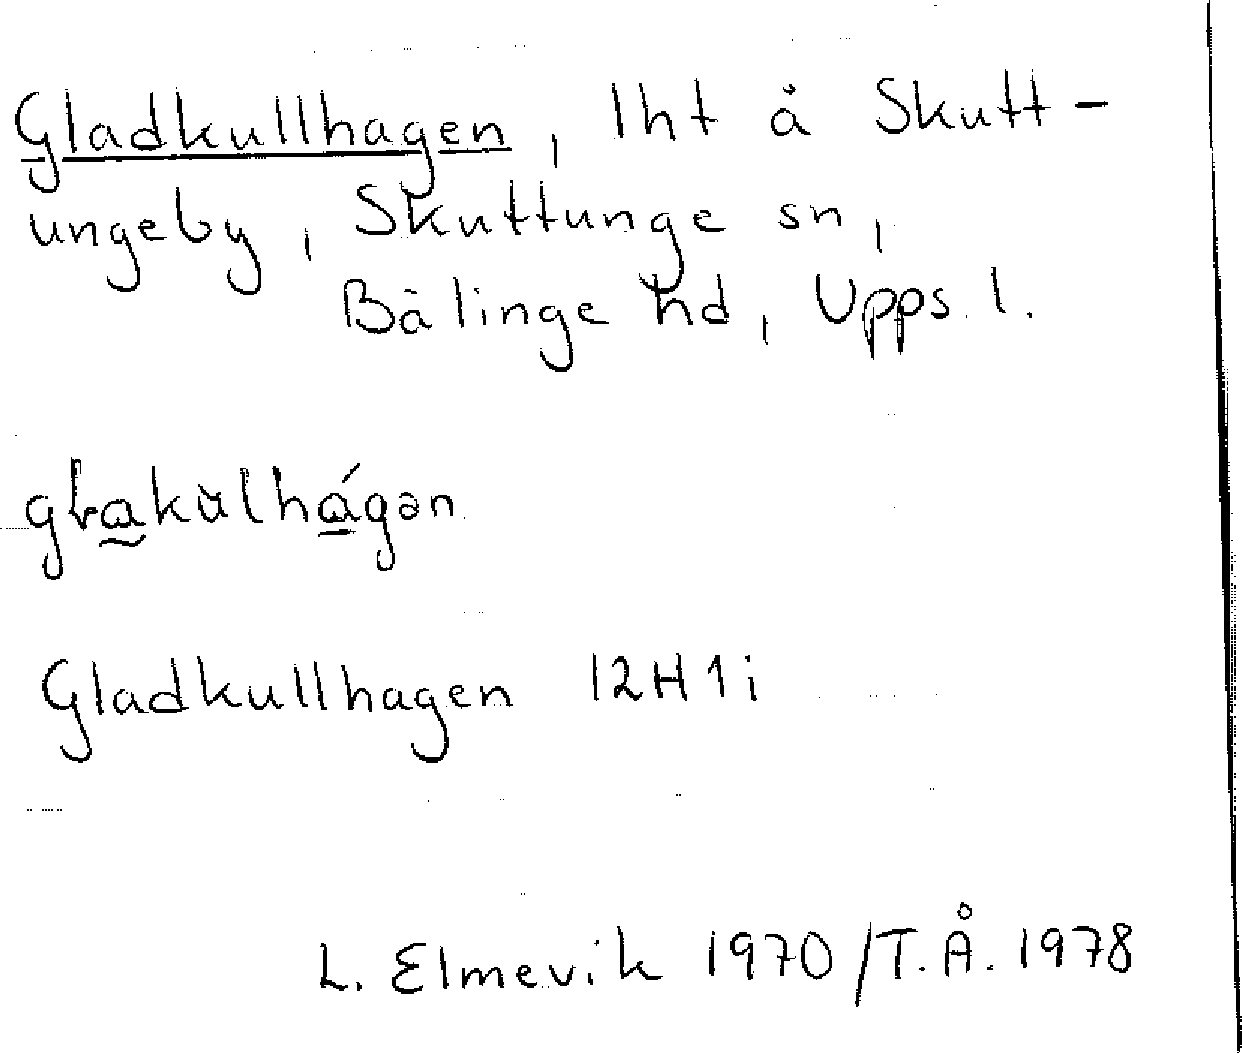 Gladkullhagen, lht å Skutt-
ungeby, Skuttunge sn,
Bälinge hd, Upps. l.
Gladkullhagen 12H1i
L. Elmevik 1970/T.Å. 1978